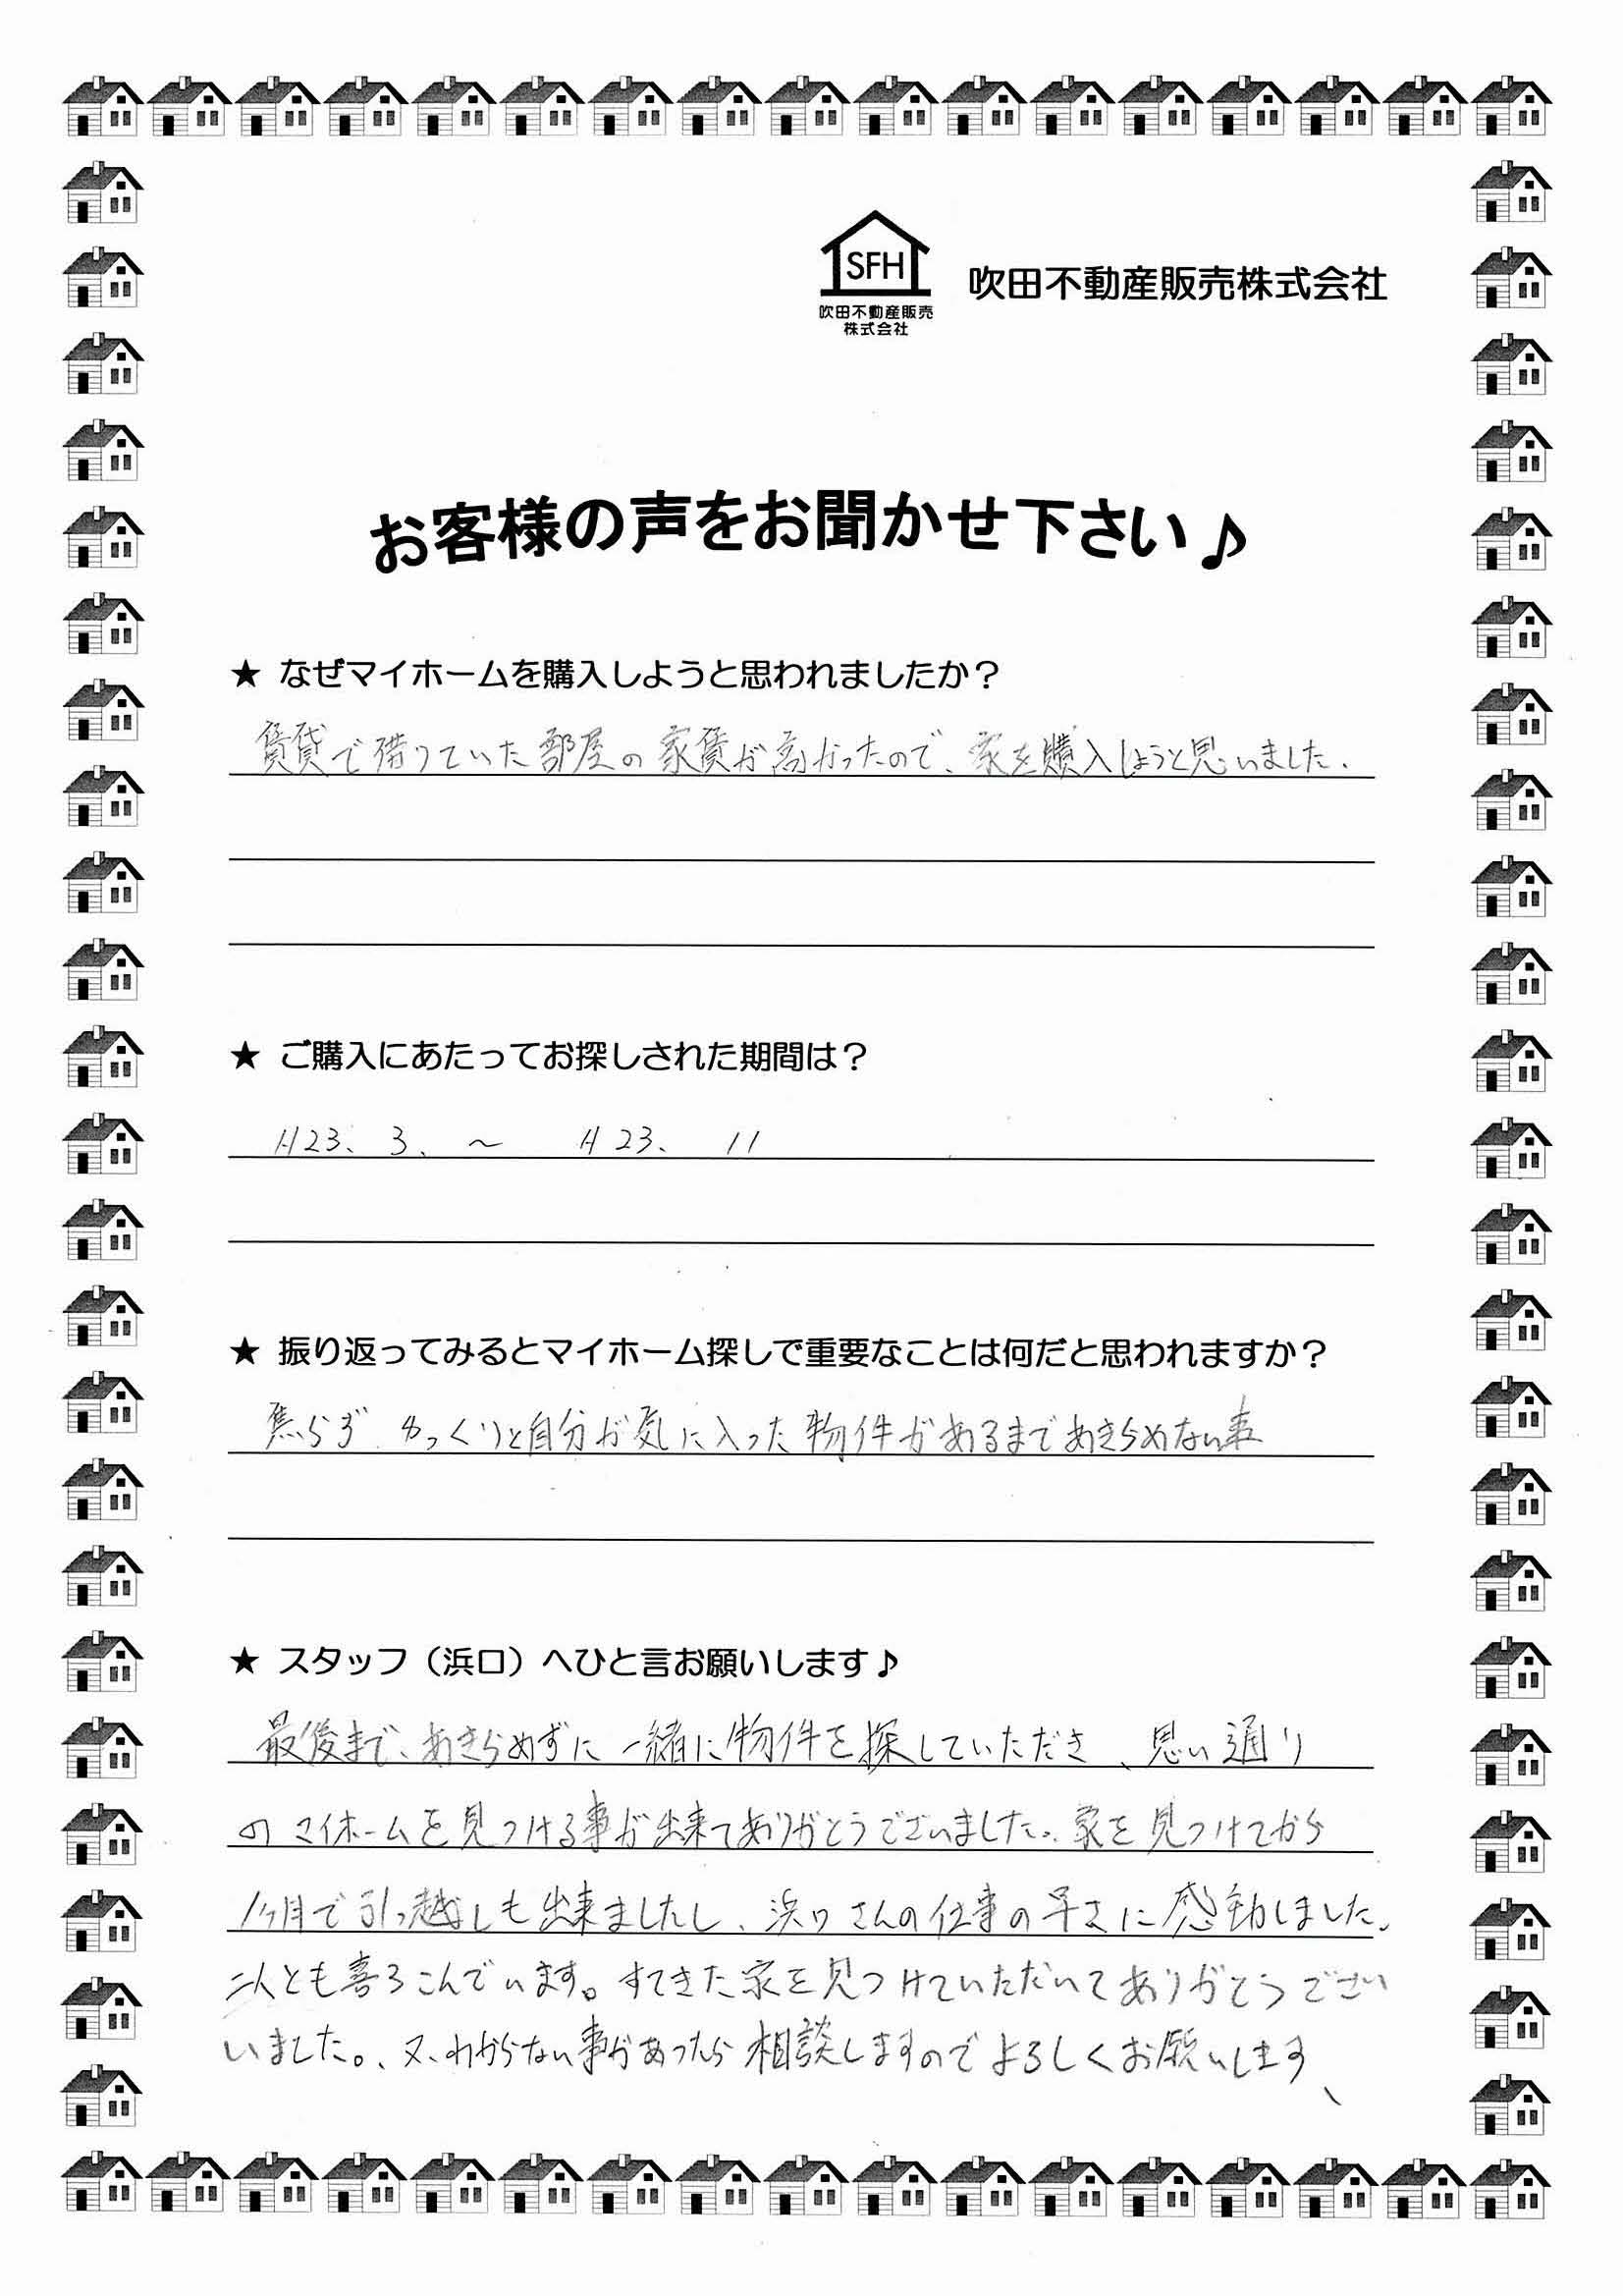 SFH
吹田不動産販売
株式会社
吹田不動産販売株式会社
お客様の声をお聞かせ下さい♪
★ なぜマイホームを購入しようと思われましたか？
賃貸で借りていた部屋の家賃が高かったので、家を購入しようと思いました。
★ ご購入にあたってお探しされた期間は？
H23、3、～ H23、11
★ 振り返ってみるとマイホーム探しで重要なことは何だと思われますか？
焦らず、ゆっくりと自分が気に入った物件があるまであきらめない事
★ スタッフ（浜口）へひと言お願いします♪
最後まで、あきらめずに一緒に物件を探していただき、思い通り
のマイホームを見つける事が出来てありがとうございました。家を見つけてから
1ヶ月で引っ越しも出来ましたし、浜口さんの仕事の早さに感動しました。
二人とも喜ろこんでいます。すてきた家を見つけていただいてありがとうござい
いました。、又、わからない事があったら相談しますのでよろしくお願いします、